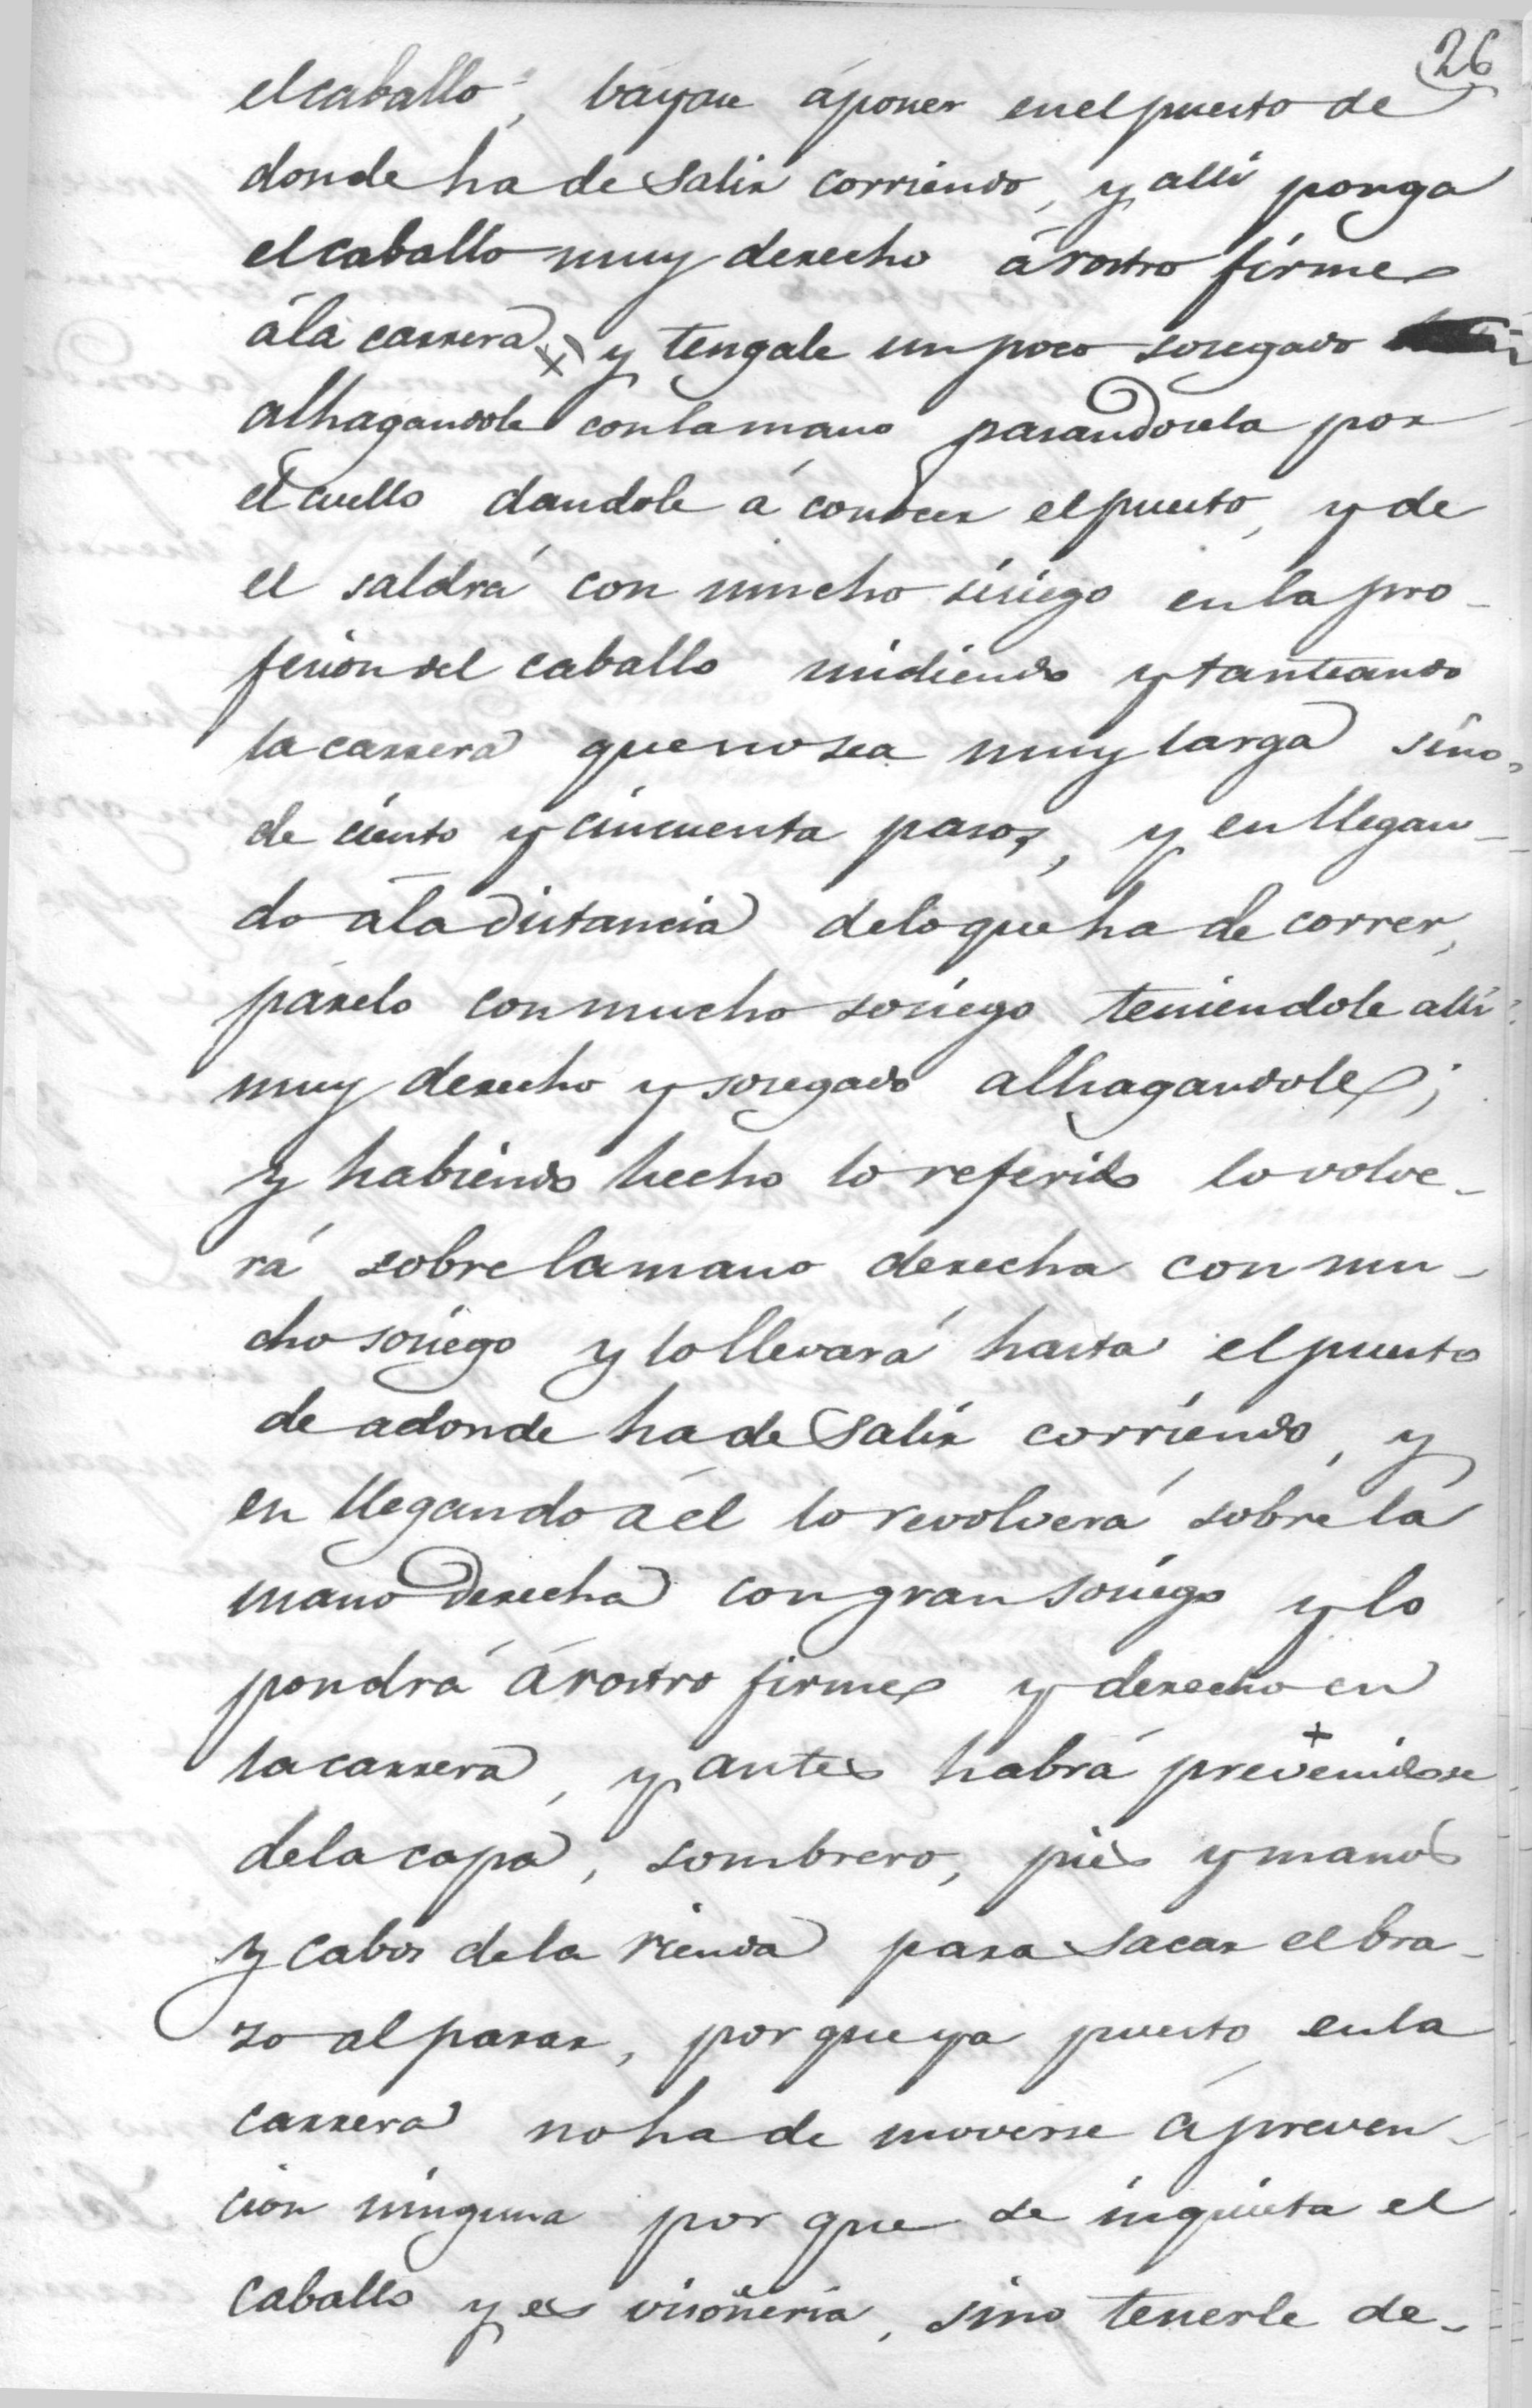 26
el caballo, bayase á poner en el puesto de
donde ha de salir corriendo, y alli ponga
el caballo muy derecho á rostro firme
á la carrera y tengale un poco sosegado
alhagandole con la mano pasandosela por
el cuello dandole á conocer el puesto, y de
el saldrá con mucho sosiego en la pro-
fesion del caballo midiendo y tanteando
la carrera que no sea muy larga sino
de ciento y cincuenta pasos, y en llegan-
do á la distancia de lo que ha de correr,
párelo con mucho sosiego teniendole alli
muy derecho y sosegado alhagandole;
y habiendo hecho lo referido lo volve-
rá sobre la mano derecha con mu-
cho sosiego y lo llevará hasta el puesto
de adonde ha de salir corriendo, y
en llegando á él lo revolverá sobre la
mano derecha con gran sosiego y lo
pondrá á rostro firme y derecho en
la carrera, y antes habrá prevenidose
de la capa, sombrero, pies y manos
y cabos de la rienda para sacar el bra-
zo al parar, por que ya puesto en la
carrera no ha de moverse á preven-
cion ninguna por que se inquieta el
caballo y es visoñeria, sino tenerle de-